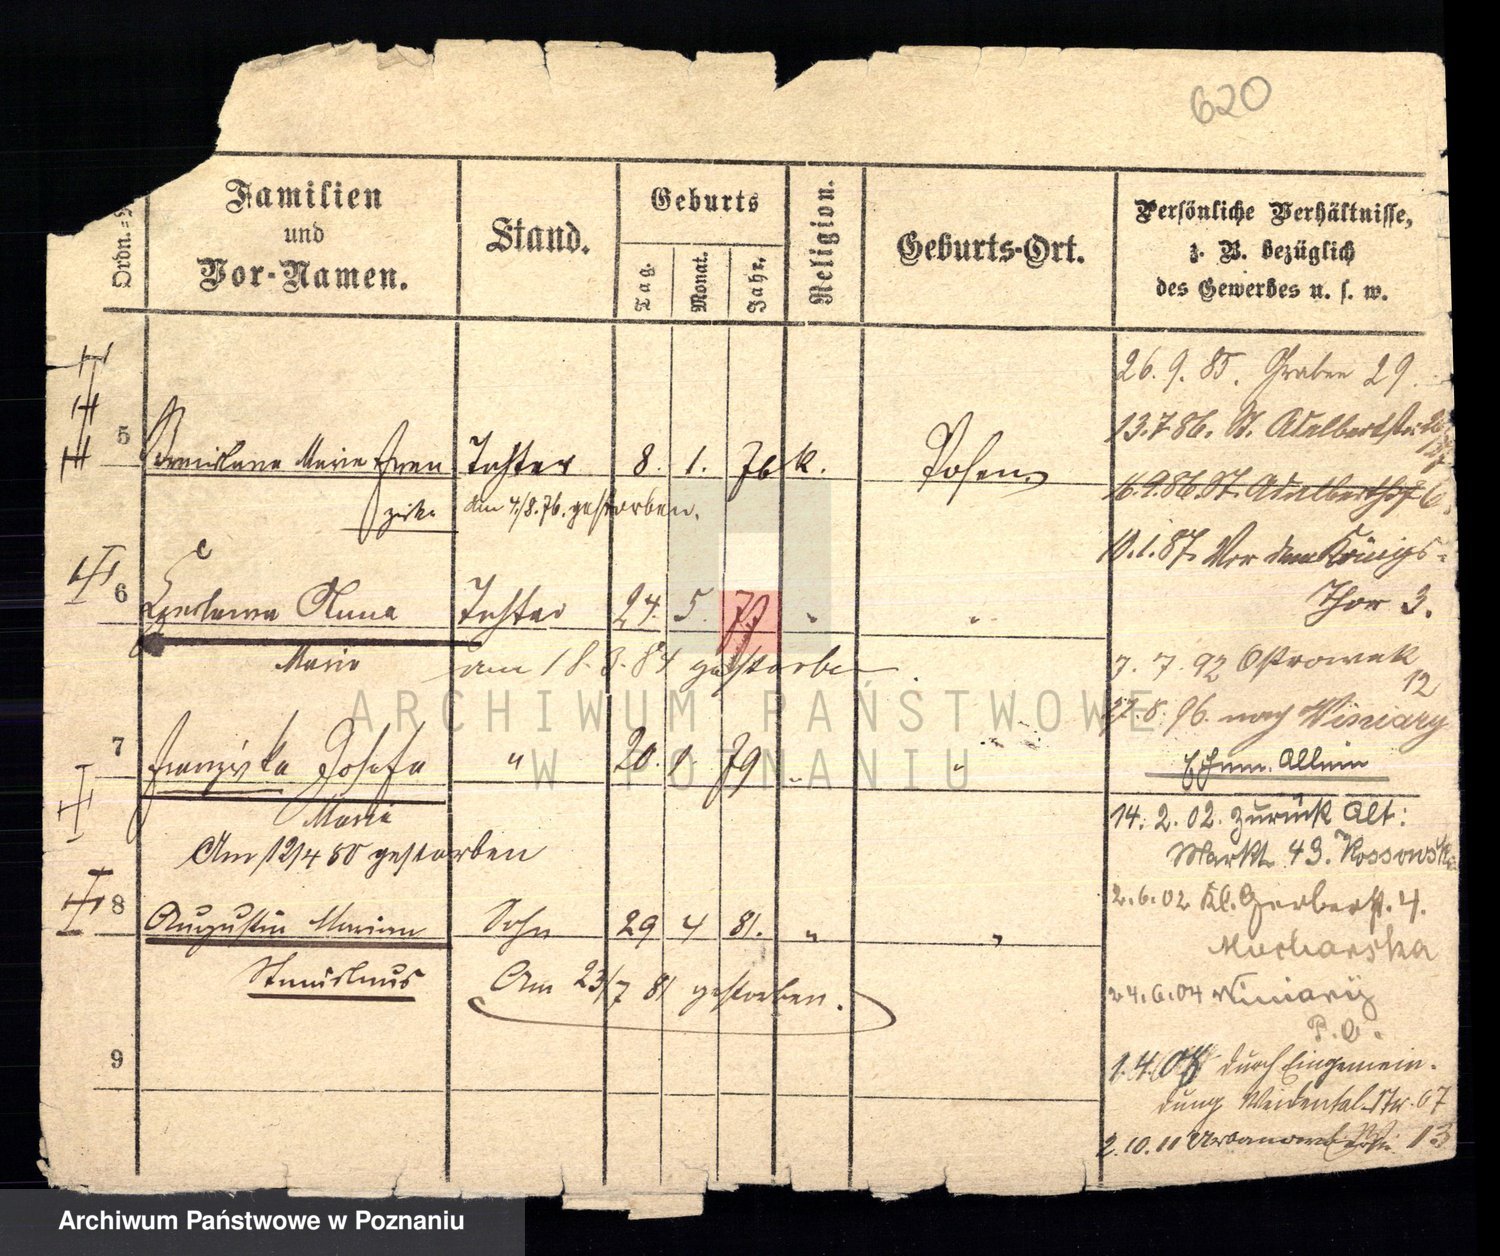 620
Ordn.=
Familien
und
Vor-Namen.
Stand.
Geburts
Tag.
Monat.
Jahr.
Religion.
Geburts-Ort.
Persönliche Verhältnisse,
z. B. bezüglich
des Gewerbes u. s. w.
26. 9. 85. Graben 29.
13. 7 86. St. Adalbertstr.
5 Maria Tochter 8. 1. 76 k. Posen
16. 9. 86 St. Adalberthof 6.
am 4/8. 76. gestorben.
10. 1. 87. Vor dem Königs-
Thor 3.
6 Anna Tochter 24. 5. 77 "
Maria am 18. 3. 84 gestorben
7. 7. 92 Ostrowek
12
27. 8. 96. nach Winiary
7 Franziska Josefa " 20. 1. 79 "
Ehem. Allein
Maria
14. 2. 02. zurück Alt:
Markt 43. Kossowska
Am 12/4 80 gestorben
8 Augustin Marian Sohn 29 4 81. " "
2. 6. 02 Kl. Gerberst. 4.
Mucharska
Stanislaus
Am 23/7 81 gestorben.
24. 6. 04 Winiary
P. B.
9
1. 4. 07 durch Eingemein-
dung Weidental-Str. 67
2. 10. 11 13
ARCHIWUM PAŃSTWOWE
W POZNANIU
Archiwum Państwowe w Poznaniu